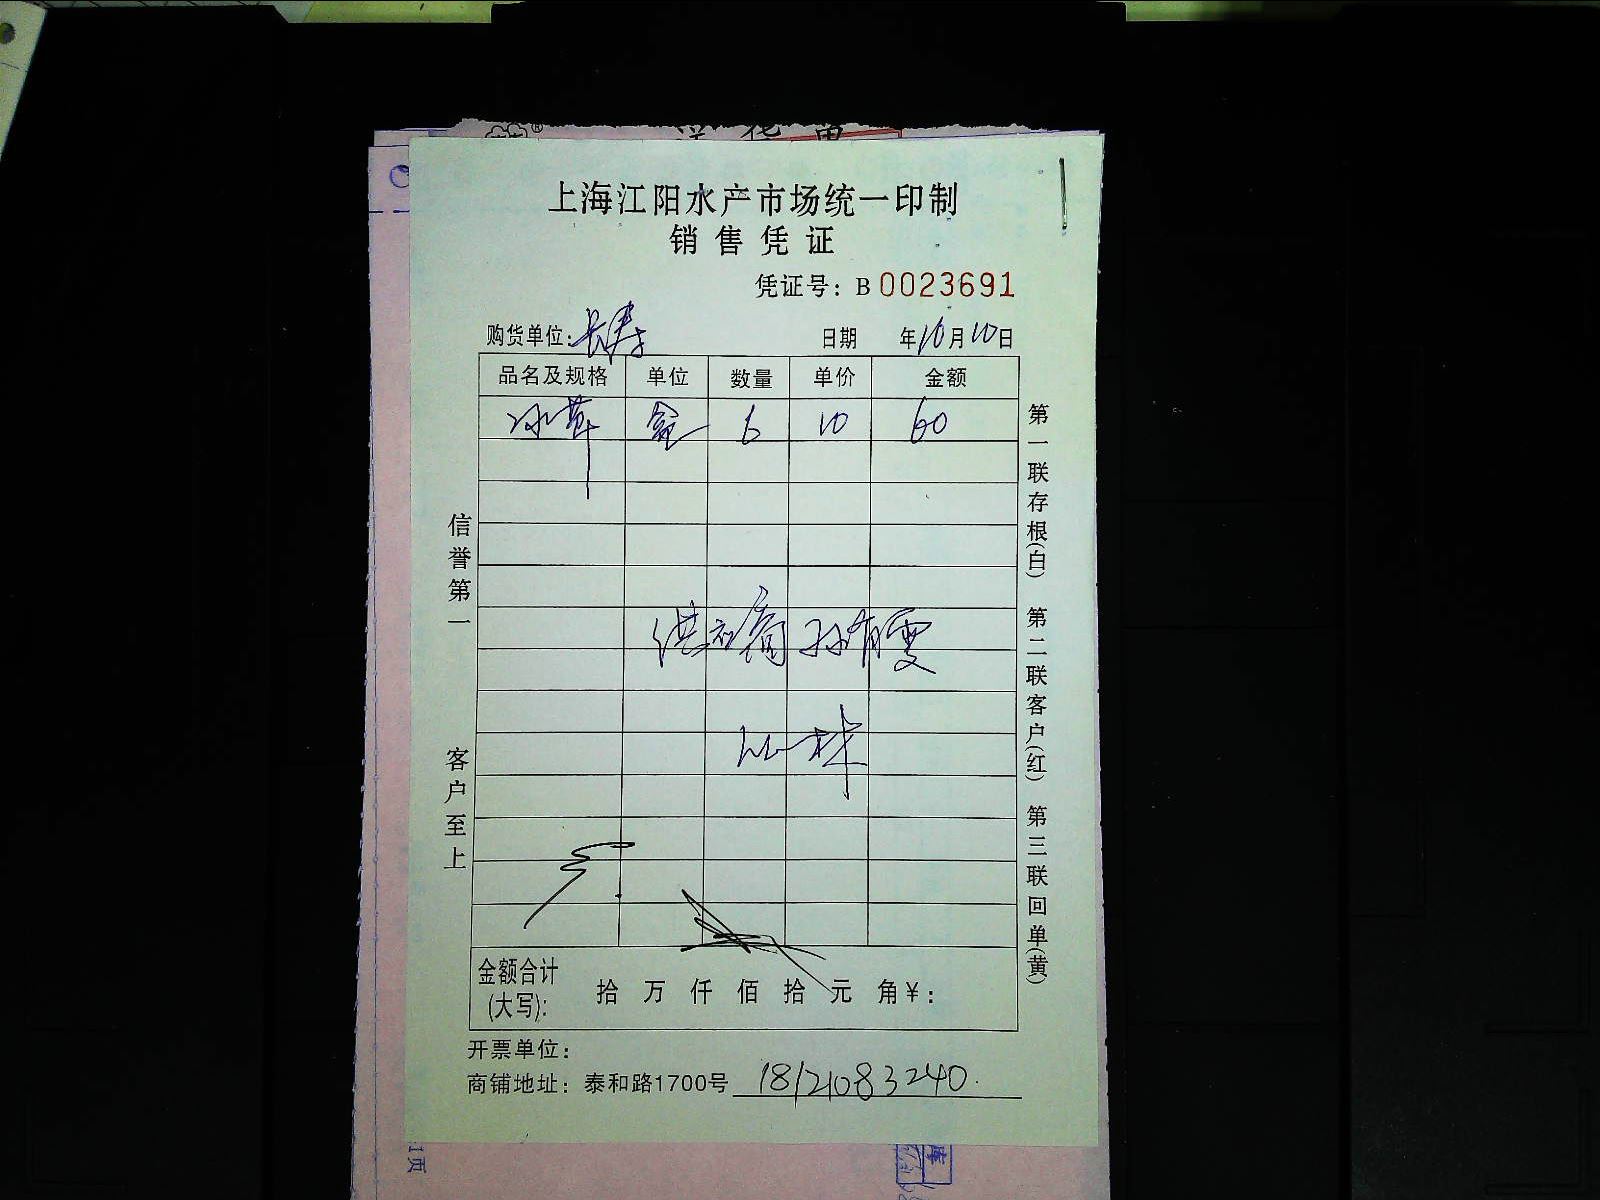 上海江阳水产市场统一印制
销售凭证
凭证号：B 0023691
购货单位：长寿 日期 年10月10日
品名及规格 单位 数量 单价 金额
冰草 盒 6 10 60
供应商 孙有雯
金额合计(大写)： 拾 万 仟 佰 拾 元 角 ¥：
开票单位：
商铺地址：泰和路1700号 18121083240
信誉第一 客户至上
第一联存根(白) 第二联客户(红) 第三联回单(黄)